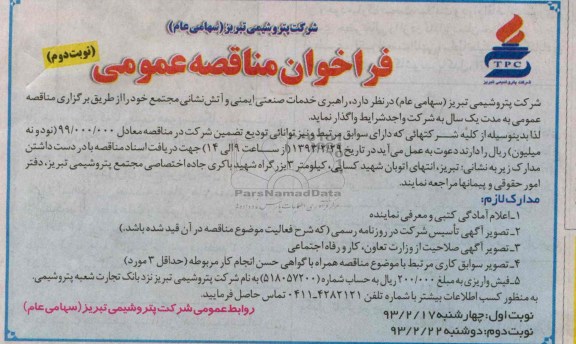 شرکت پتروشیمی تبریز (سهامی عام)
(نوبت دوم)
فراخوان مناقصه عمومی
TPC
شرکت پتروشیمی تبریز
شرکت پتروشیمی تبریز (سهامی عام) در نظر دارد، راهبری خدمات صنعتی ایمنی و آتش نشانی مجتمع خود را از طریق برگزاری مناقصه
عمومی به مدت یک سال به شرکت واجد شرایط واگذار نماید.
لذا بدینوسیله از کلیه شرکتهائی که دارای سوابق مرتبط و نیز توانائی تودیع تضمین شرکت در مناقصه معادل ۹۹/۰۰۰/۰۰۰ (نود و نه
میلیون) ریال را دارند دعوت به عمل می‌آید در تاریخ ۱۳۹۳/۲/۲۹ (از ساعت ۹ الی ۱۴) جهت دریافت اسناد مناقصه با در دست داشتن
مدارک زیر به نشانی: تبریز، انتهای اتوبان شهید کسائی، کیلومتر ۳ بزرگراه شهید باکری جاده اختصاصی مجتمع پتروشیمی تبریز، دفتر
امور حقوقی و پیمانها مراجعه نمایند.
مدارک لازم:
۱ـ اعلام آمادگی کتبی و معرفی نماینده
۲ـ تصویر آگهی تأسیس شرکت در روزنامه رسمی (که شرح فعالیت موضوع مناقصه در آن قید شده باشد.)
۳ـ تصویر آگهی صلاحیت از وزارت تعاون، کار و رفاه اجتماعی
۴ـ تصویر سوابق کاری مرتبط با موضوع مناقصه همراه با گواهی حسن انجام کار مربوطه (حداقل ۳ مورد)
۵ـ فیش واریزی به مبلغ ۲۰۰/۰۰۰ ریال به حساب شماره (۵۱۸۰۵۷۲۰۰) به نام شرکت پتروشیمی تبریز نزد بانک تجارت شعبه پتروشیمی.
به منظور کسب اطلاعات بیشتر با شماره تلفن ۴۲۸۲۱۲۱-۰۴۱۱ تماس حاصل فرمایید.
نوبت اول: چهارشنبه ۹۳/۲/۱۷
روابط عمومی شرکت پتروشیمی تبریز (سهامی عام)
نوبت دوم: دوشنبه ۹۳/۲/۲۲
ParsNamadData